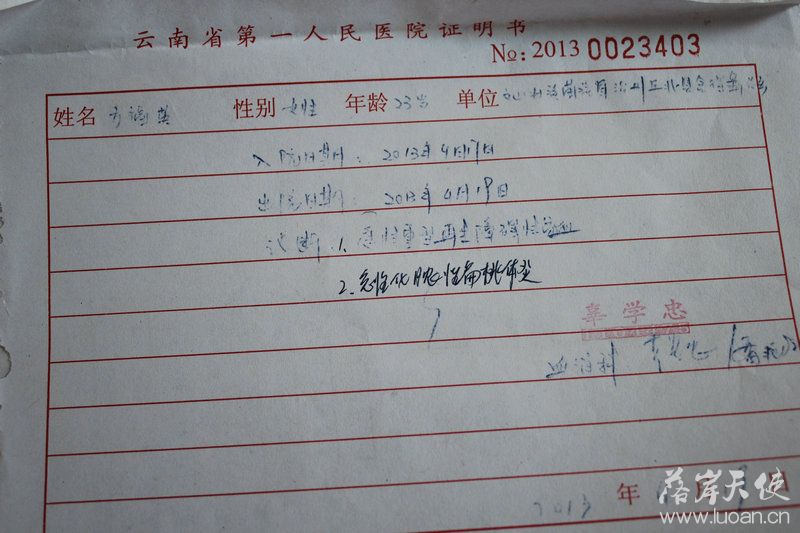 云南省第一人民医院证明书
No: 2013 0023403
姓名 性别 女性 年龄 23岁 单位
入院日期: 2013年4月17日
出院日期: 2013年4月19日
诊断: 1. 急性重型再生障碍性贫血
2. 急性化脓性扁桃体炎
辜学忠
血液科
2013 年 月 日
落岸天使
www.luoan.cn